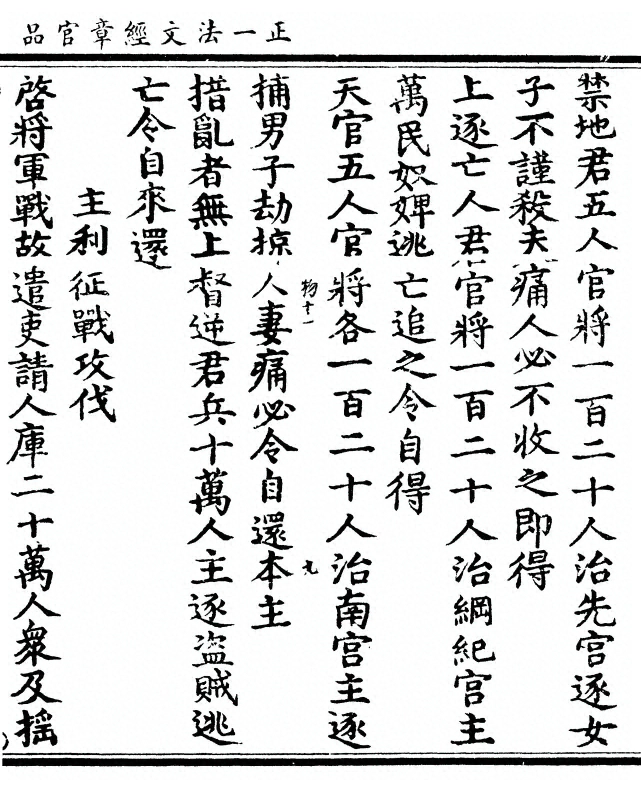 正一法文經章官品
禁地君五人官將一百二十人治先宮逐女
子不謹殺夫痛人必不收之即得
上逐亡人君官將一百二十人治綱紀宮主
萬民奴婢逃亡追之令自得
天官五人官將各一百二十人治南宮主逐
捕男子劫掠人妻痛必令自還本主
物十一
九
措亂者無上督逆君兵十萬人主逐盜賊逃
亡令自來還
主利征戰攻伐
啓將軍戰故遣吏請人庫二十萬人衆及摇